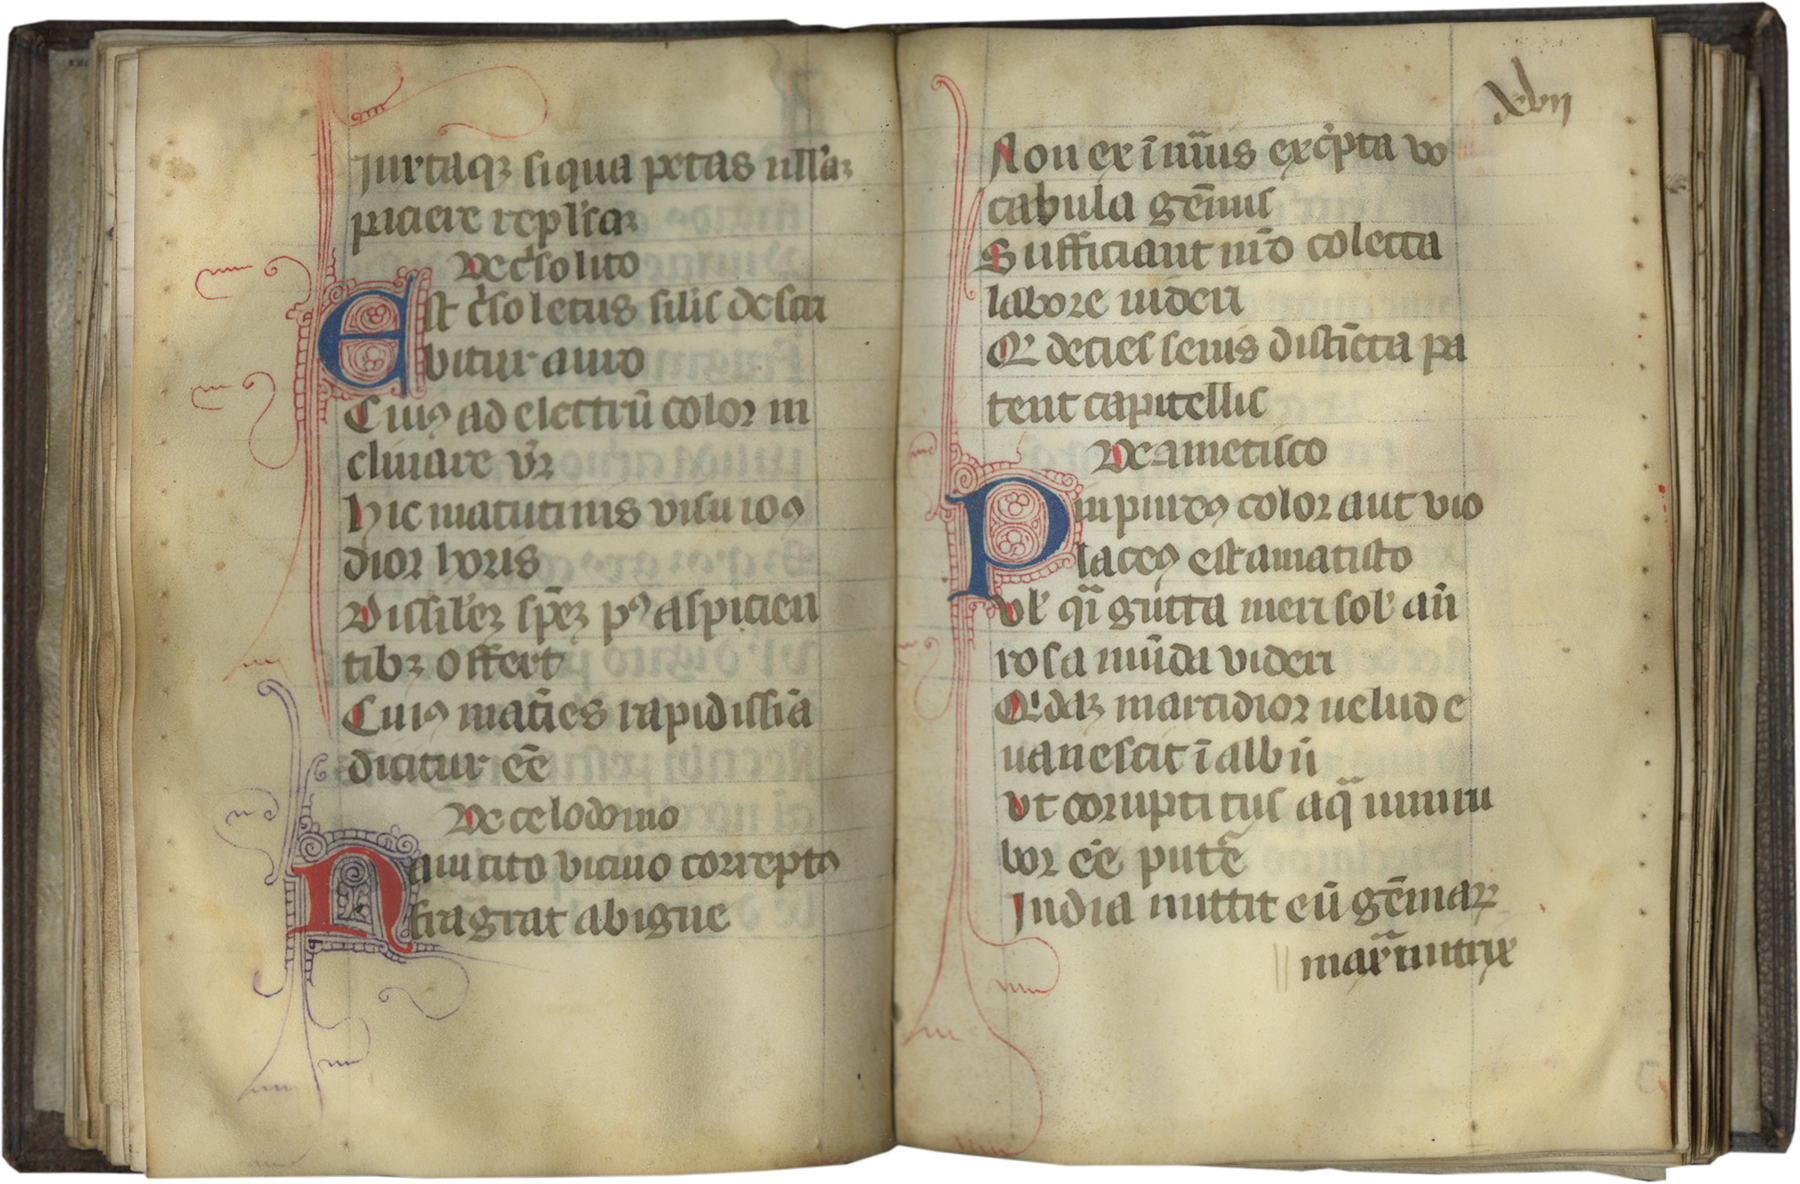 Iuxtaqꝫ si qua petas ull'aꝫ
piciere repl'icaꝫ
De c'solito
Est c'soletus silis descri
bitur auro
Cuiꝯ ad electrū color in
clinare vr̄
Hic matutinis visu iocꝯ
dior horis
Dissil'eꝫ sp̄eꝫ pꝰ aspicien
tibꝫ offert
Cuiꝯ mat̄ies rapidissīa
dicitur eē
De celodonio
Nam cito vicino correptꝯ
fragrat ab igne
xlvii
Non ex īnūīs exc'pta vo
cabula gēmis
Sufficiant nr̄o colecta
labore videri
Qꝛ decies senis distīcta pa
tent capitellis
De ametisco
Purpureꝯ color aut vio
laceꝯ est amatisto
Vel' qͣi gutta meri sol' aū
rosa mūda videri
Q'daꝫ marcidior uelud e
uanescit ī albū
Vt corupti tus aq̄ uinu
bor eē putē
India mittit eū gēmaꝝ
maxͣ nutrix